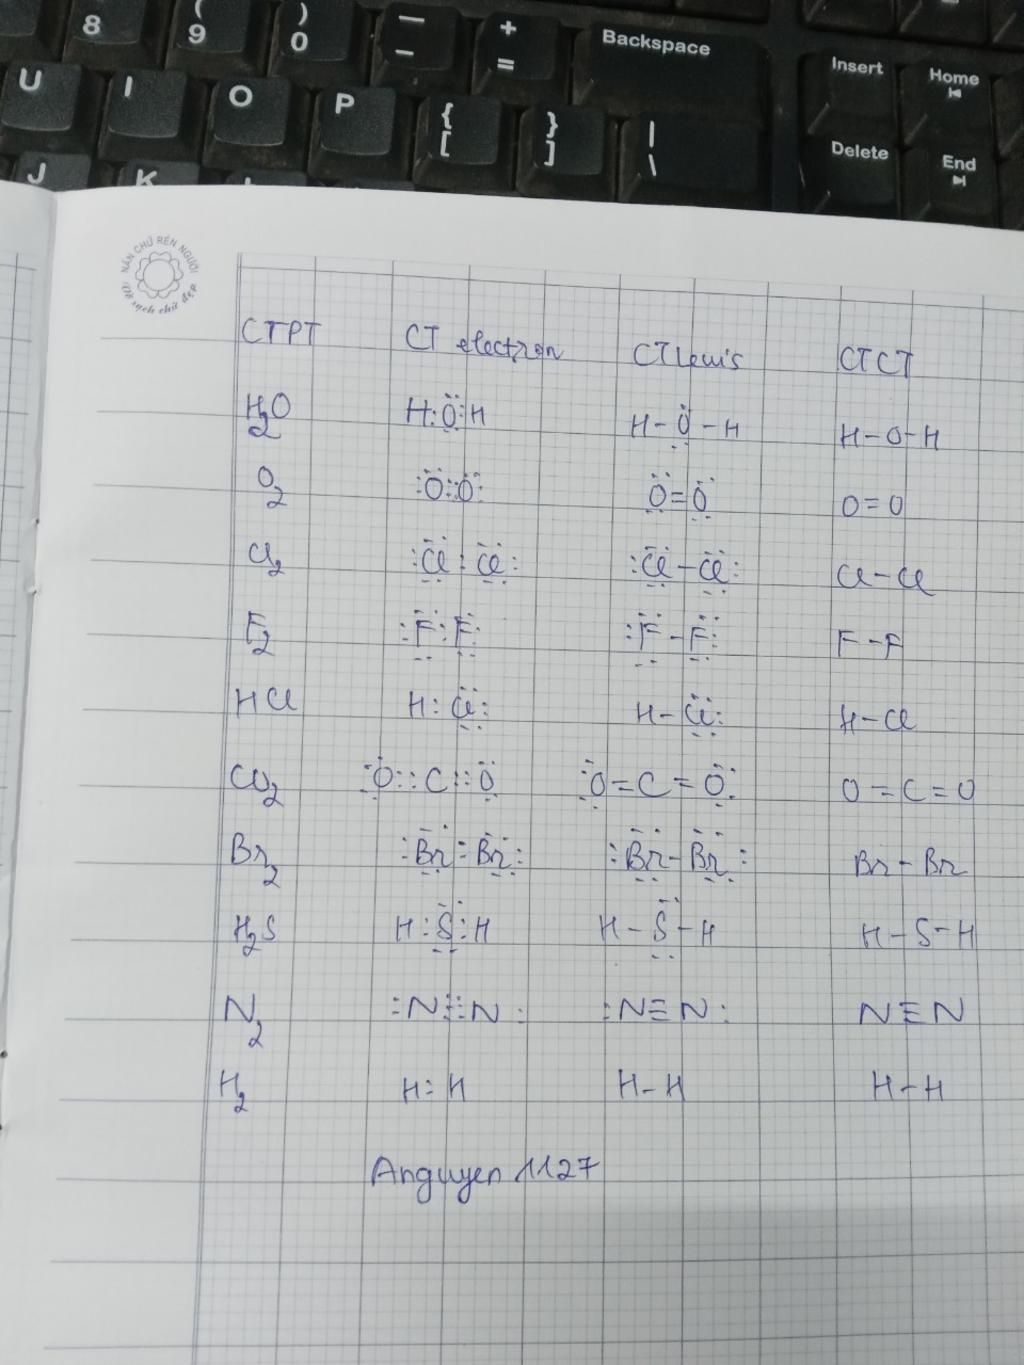 8 ( 9 ) 0 — – + = Backspace Insert Home
U I O P { [ } ] | \ Delete End
J K L
NẮN CHỮ RÈN NGƯỜI
CTPT CT electron CT Lewis CTCT
H₂O H:Ö:H H–Ö–H H–O–H
O₂ :Ö::Ö: Ö=Ö O=O
Cl₂ :Cl:Cl: :Cl–Cl: Cl–Cl
F₂ :F:F: :F–F: F–F
HCl H:Cl: H–Cl: H–Cl
CO₂ :O::C::O O=C=O O=C=O
Br₂ :Br:Br: :Br–Br: Br–Br
H₂S H:S:H H–S–H H–S–H
N₂ :N:::N: :N≡N: N≡N
H₂ H:H H–H H–H
Anguyen 1127